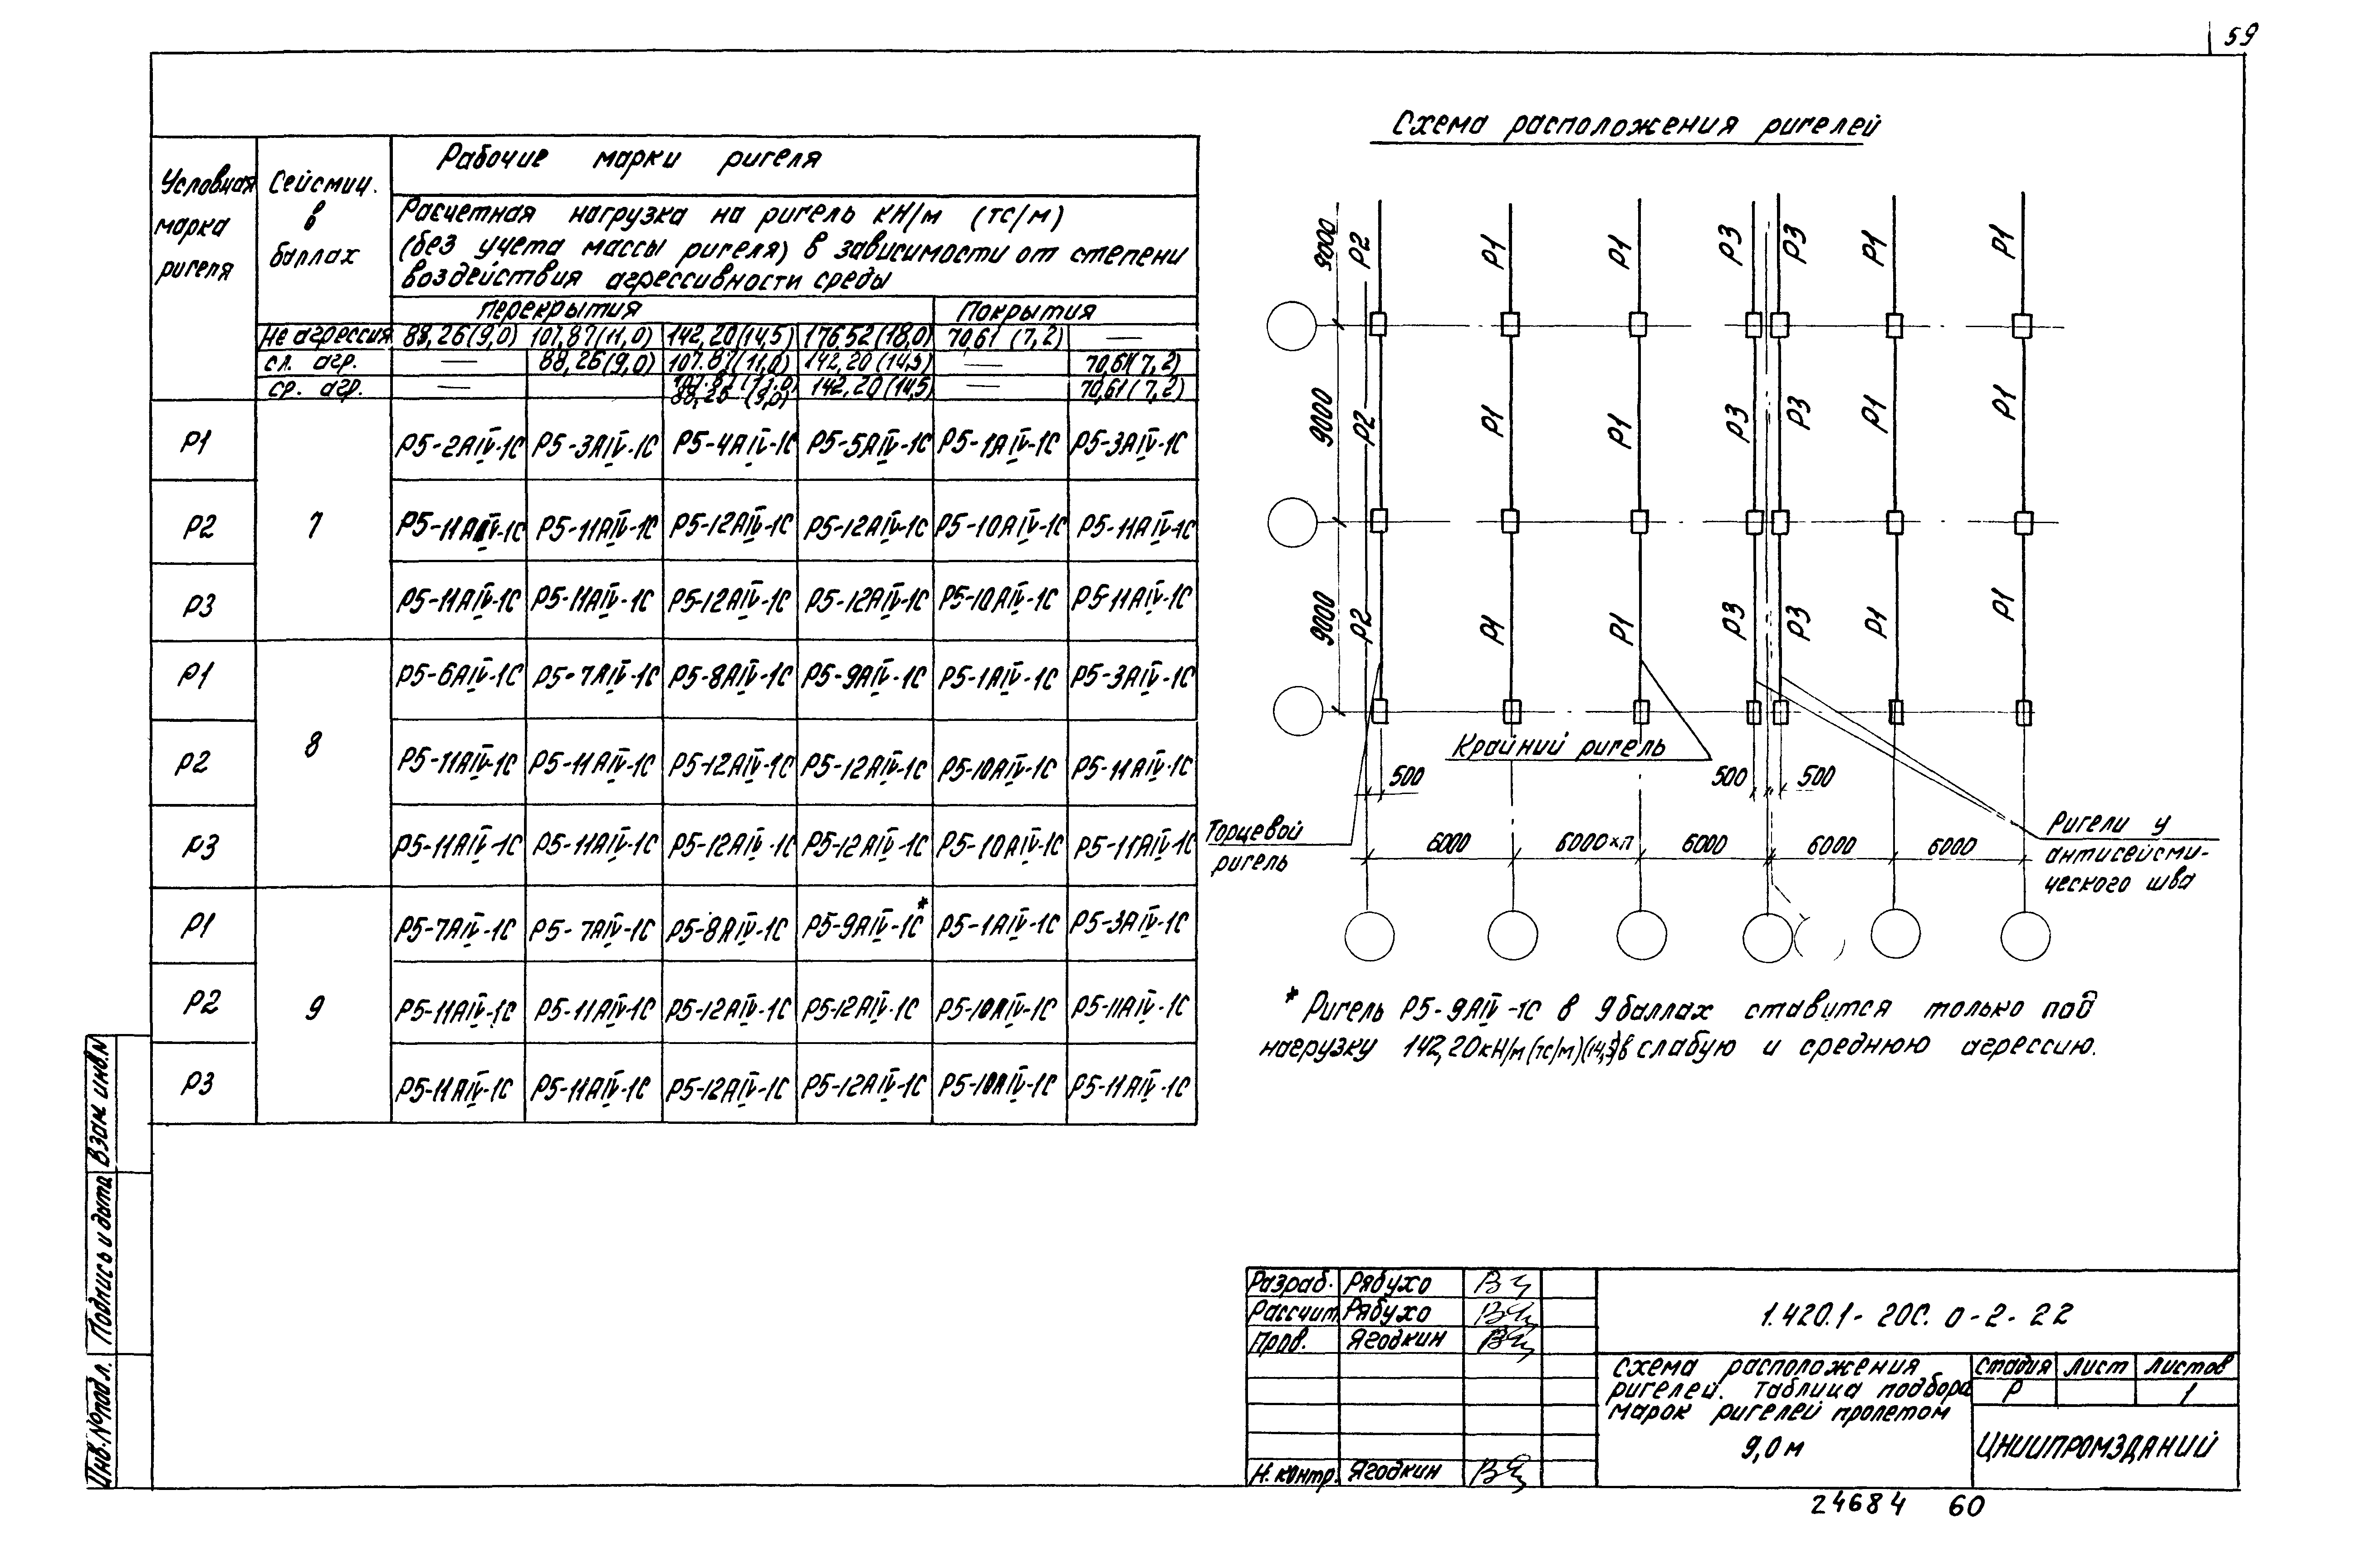 59
Схема расположения ригелей
Условная марка ригеля
Сейсмич. в баллах
Рабочие марки ригеля
Расчетная нагрузка на ригель кН/м (тс/м)
(без учета массы ригеля) в зависимости от степени
воздействия агрессивности среды
перекрытия покрытия
не агрессия 88,26(9,0) 107,87(11,0) 142,20(14,5) 176.52(18,0) 70,61 (7,2) —
сл. агр. — 88,26(9,0) 107.87(11,0) 142,20(14,5) — 70,61(7,2)
ср. агр. — 107.87(11.0) 142,20(14,5 — 70,61(7,2)
88,26 (9,0)
Р1 Р5-2АIV-1С Р5-3АIV-1С Р5-4АIV-1С Р5-5АIV-1С Р5-1АIV-1С Р5-3АIV-1С
Р2 7 Р5-11АIV-1С Р5-11АIV-1С Р5-12АIV-1С Р5-12АIV-1С Р5-10АIV-1С Р5-11АIV-1С
Р3 Р5-11АIV-1С Р5-11АIV-1С Р5-12АIV-1С Р5-12АIV-1С Р5-10АIV-1С Р5-11АIV-1С
Р1 Р5-6АIV-1С Р5-7АIV-1С Р5-8АIV-1С Р5-9АIV-1С Р5-1АIV-1С Р5-3АIV-1С
Р2 8 Р5-11АIV-1С Р5-11АIV-1С Р5-12АIV-1С Р5-12АIV-1С Р5-10АIV-1С Р5-11АIV-1С
Р3 Р5-11АIV-1С Р5-11АIV-1С Р5-12АIV-1С Р5-12АIV-1С Р5-10АIV-1С Р5-11АIV-1С
Р1 Р5-7АIV-1С Р5-7АIV-1С Р5-8АIV-1С Р5-9АIV-1С* Р5-1АIV-1С Р5-3АIV-1С
Р2 9 Р5-11АIV-1С Р5-11АIV-1С Р5-12АIV-1С Р5-12АIV-1С Р5-10АIV-1С Р5-11АIV-1С
Р3 Р5-11АIV-1С Р5-11АIV-1С Р5-12АIV-1С Р5-12АIV-1С Р5-10АIV-1С Р5-11АIV-1С
9000 Р2 Р1 Р1 Р3 Р3 Р1 Р1
9000 Р2 Р1 Р1 Р3 Р3 Р1 Р1
9000 Р2 Р1 Р1 Р3 Р3 Р1 Р1
Крайний ригель
500 500 500
Торцевой
ригель
6000 6000×п 6000 6000 6000
Ригели у
антисейсми-
ческого шва
* Ригель Р5-9АIV-1С в 9 баллах ставится только под
нагрузку 142,20кН/м(тс/м)(14,5)в слабую и среднюю агрессию.
Взам инв.N
Подпись и дата
Инв.№подл.
Разраб. Рябухо
Рассчит. Рябухо
Пров. Ягодкин
Н. контр. Ягодкин
1.420.1-20С. 0-2-22
Схема расположения
ригелей. Таблица подбора
марок ригелей пролетом
9,0м
Стадия Лист Листов
Р 1
ЦНИИПРОМЗДАНИЙ
24684 60